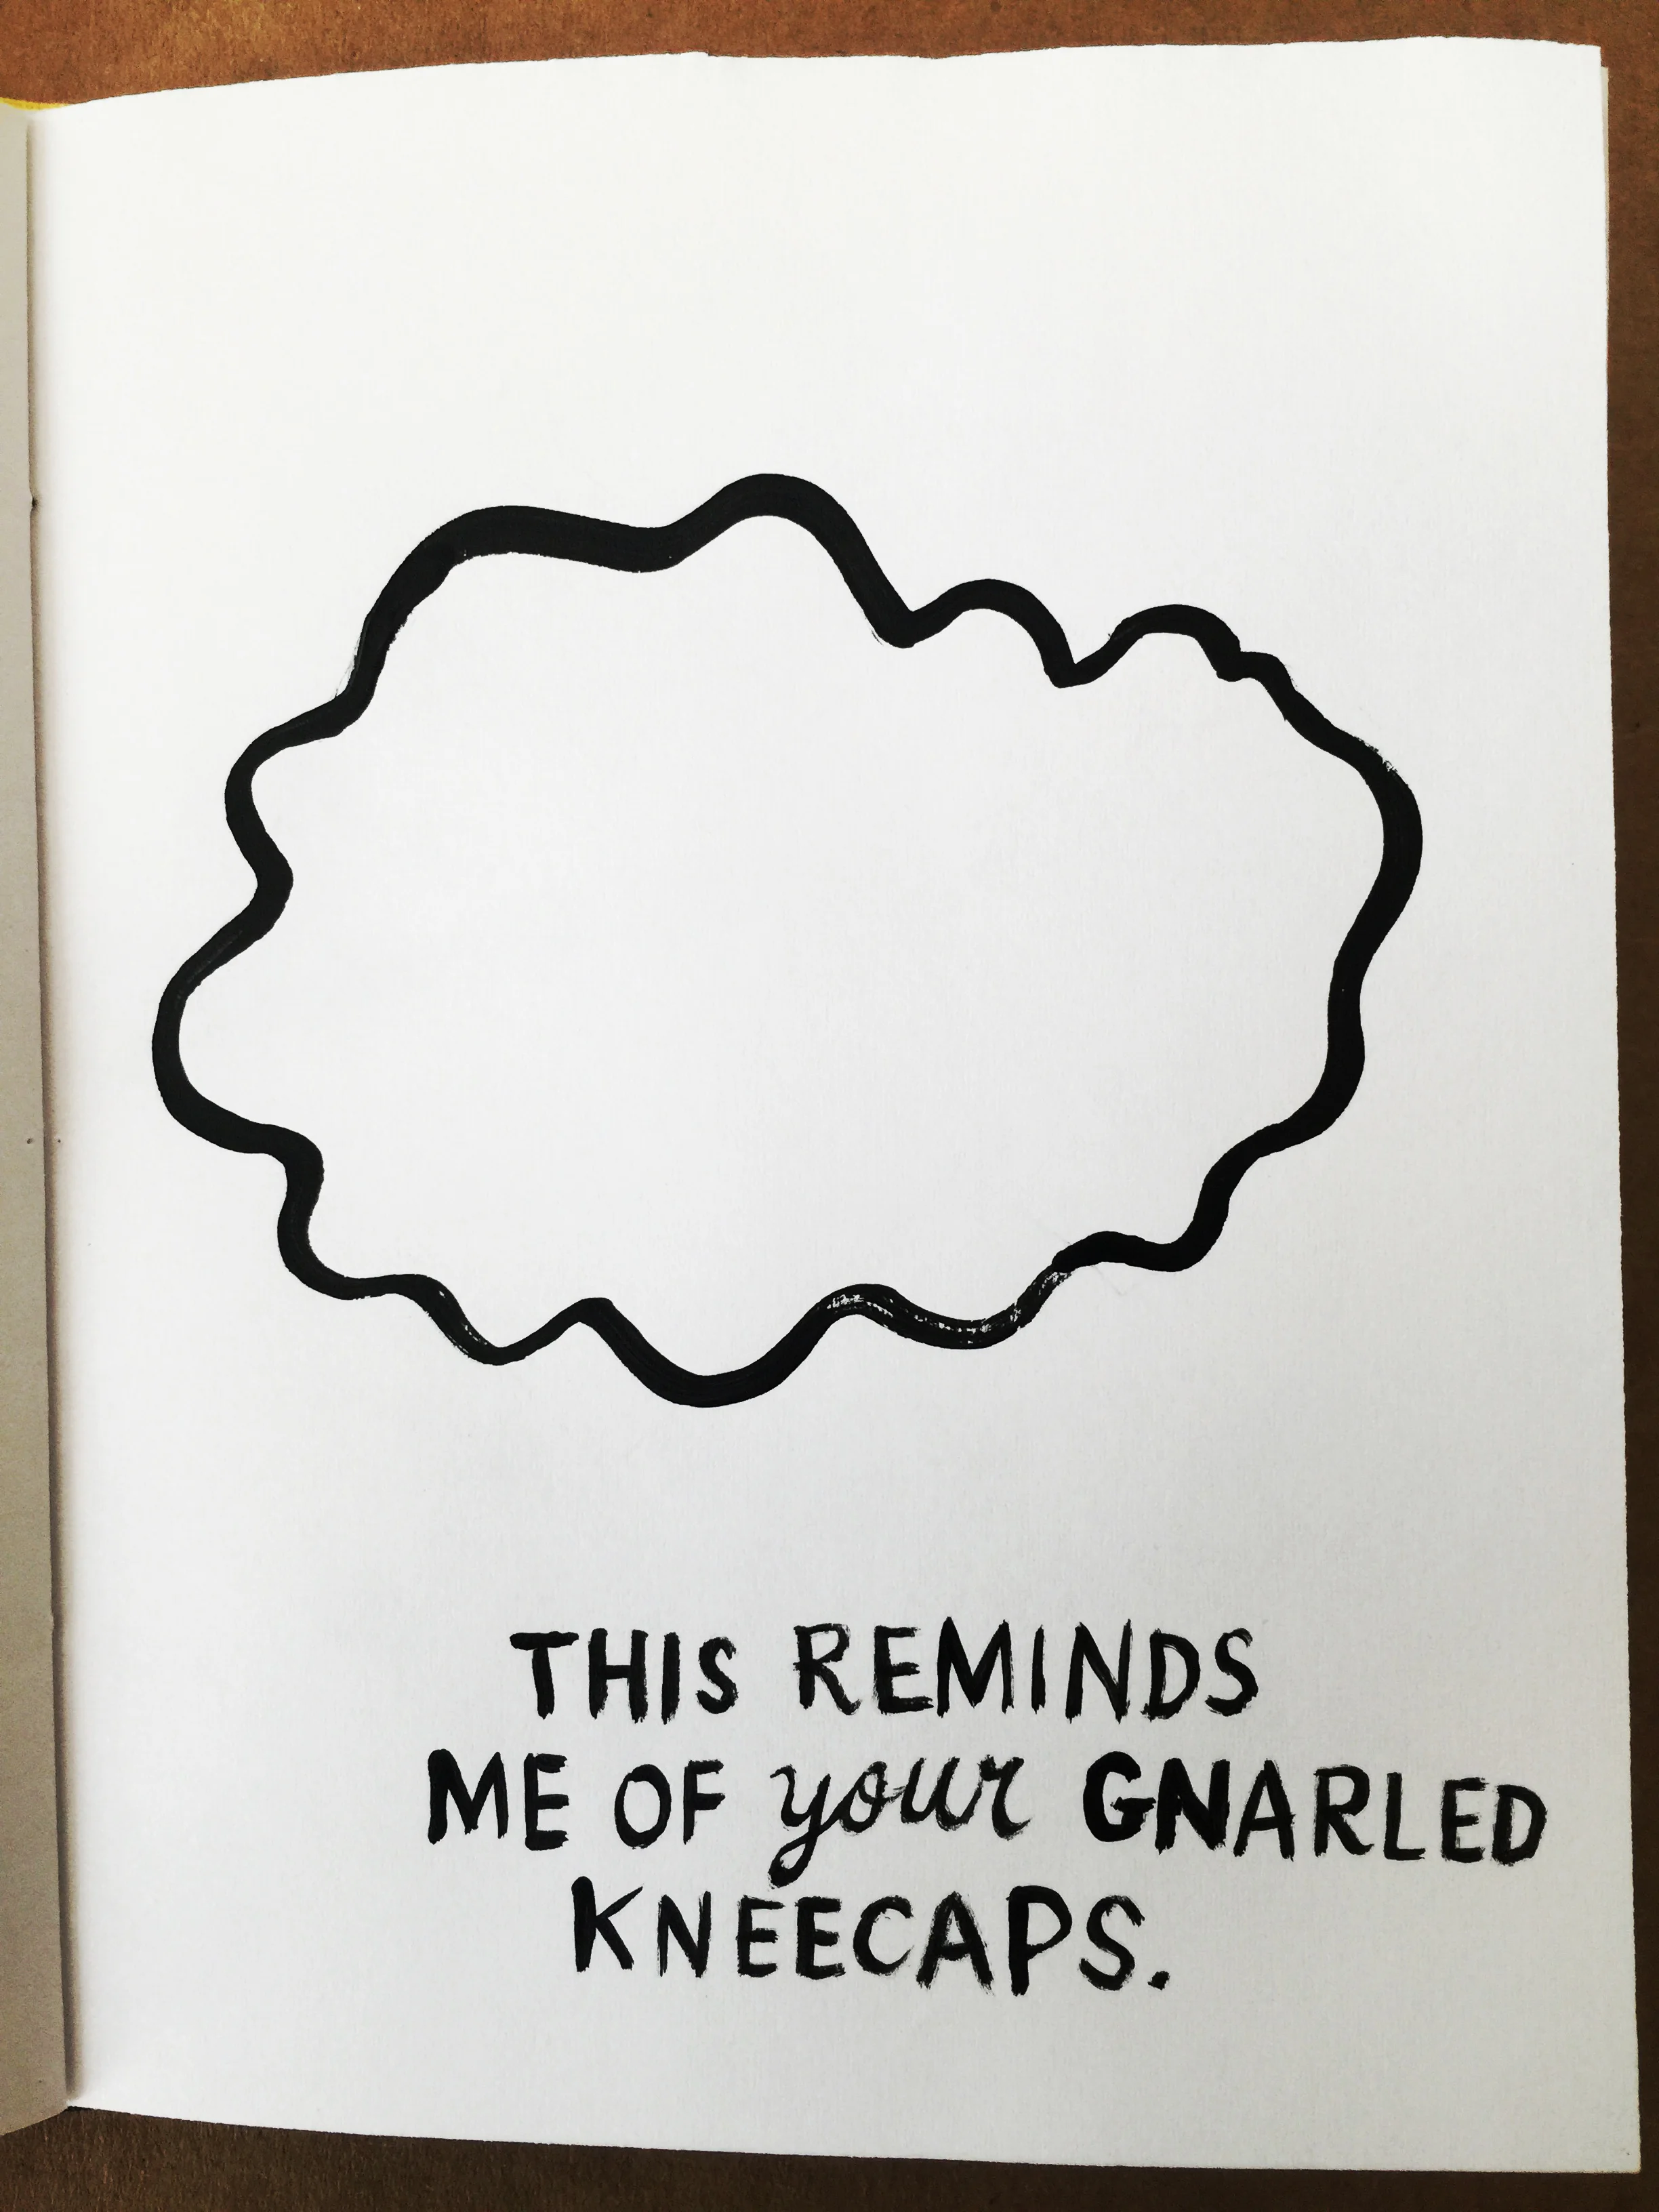 THIS REMINDS
ME OF your GNARLED
KNEECAPS.